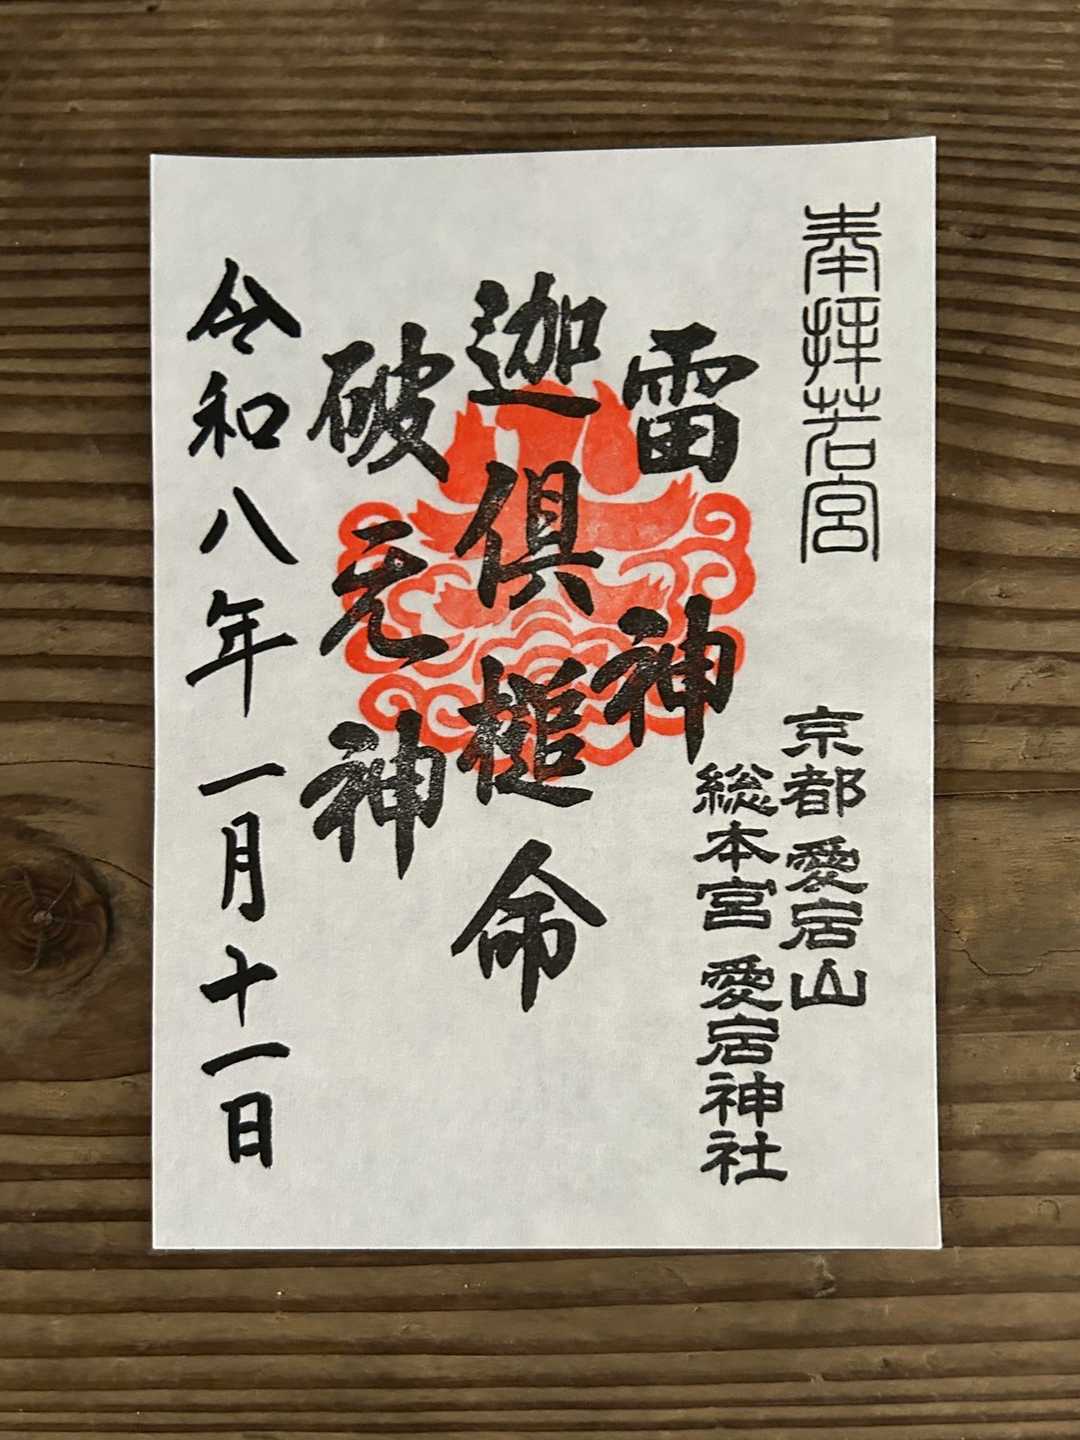 奉拝若宮
京都愛宕山
総本宮 愛宕神社
雷神
迦倶槌命
破无神
令和八年一月十一日